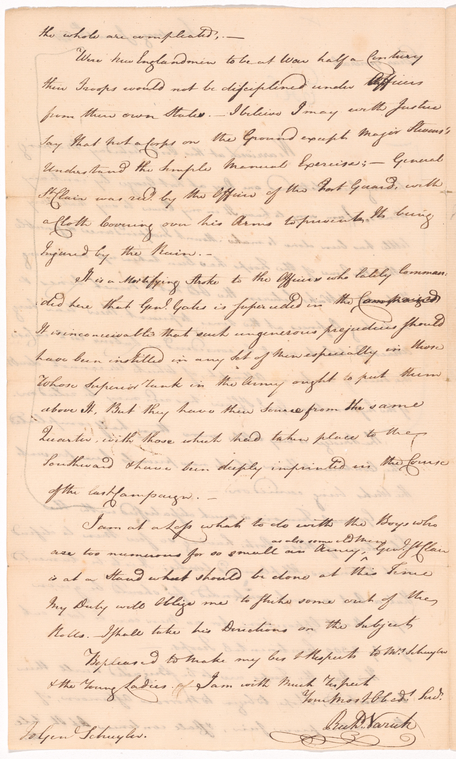 the whole are complicated; —
Were New Englandmen to be at War half a Century
their Troops would not be disciplined under Officers
from their own States. — I believe I may with Justice
say that not a Corps on the Ground except Majr Stevens's
Understand the simple Manual Exercise; — General
St Clair was recd. by the Officer of the Fort Guard, with
a Cloth Covering over his Arms to prevent Its being
Injured by the Rain. —
It is a Mortifying Stroke to the Officers who lately Comman
ded here that Genl. Gates is superceded in the Command
It is inconceivable that such ungenerous prejudices should
have been instilled in any Set of Men especially in those
Whose superior rank in the Army ought to put them
above It. But they have their Source from the same
Quarter, with those which had taken place to the
Southward & have been deeply imprinted in the Course
of the last Campaign. —
I am at a Loss what to do with the Boys who
as also some old Men,
are too numerous for so small an Army, ^ Genl. St Clair
is at a Stand what should be done at this Time
My Duty will Oblige me to strike some out of the
Rolls. — I shall take his Directions on the Subject
Be pleased to make my best Respects to Mrs. Schuyler
& the Young Ladies I am with Much Respect
Your Most Obedt. Sert.
Richd. Varick
To Gen Schuyler.